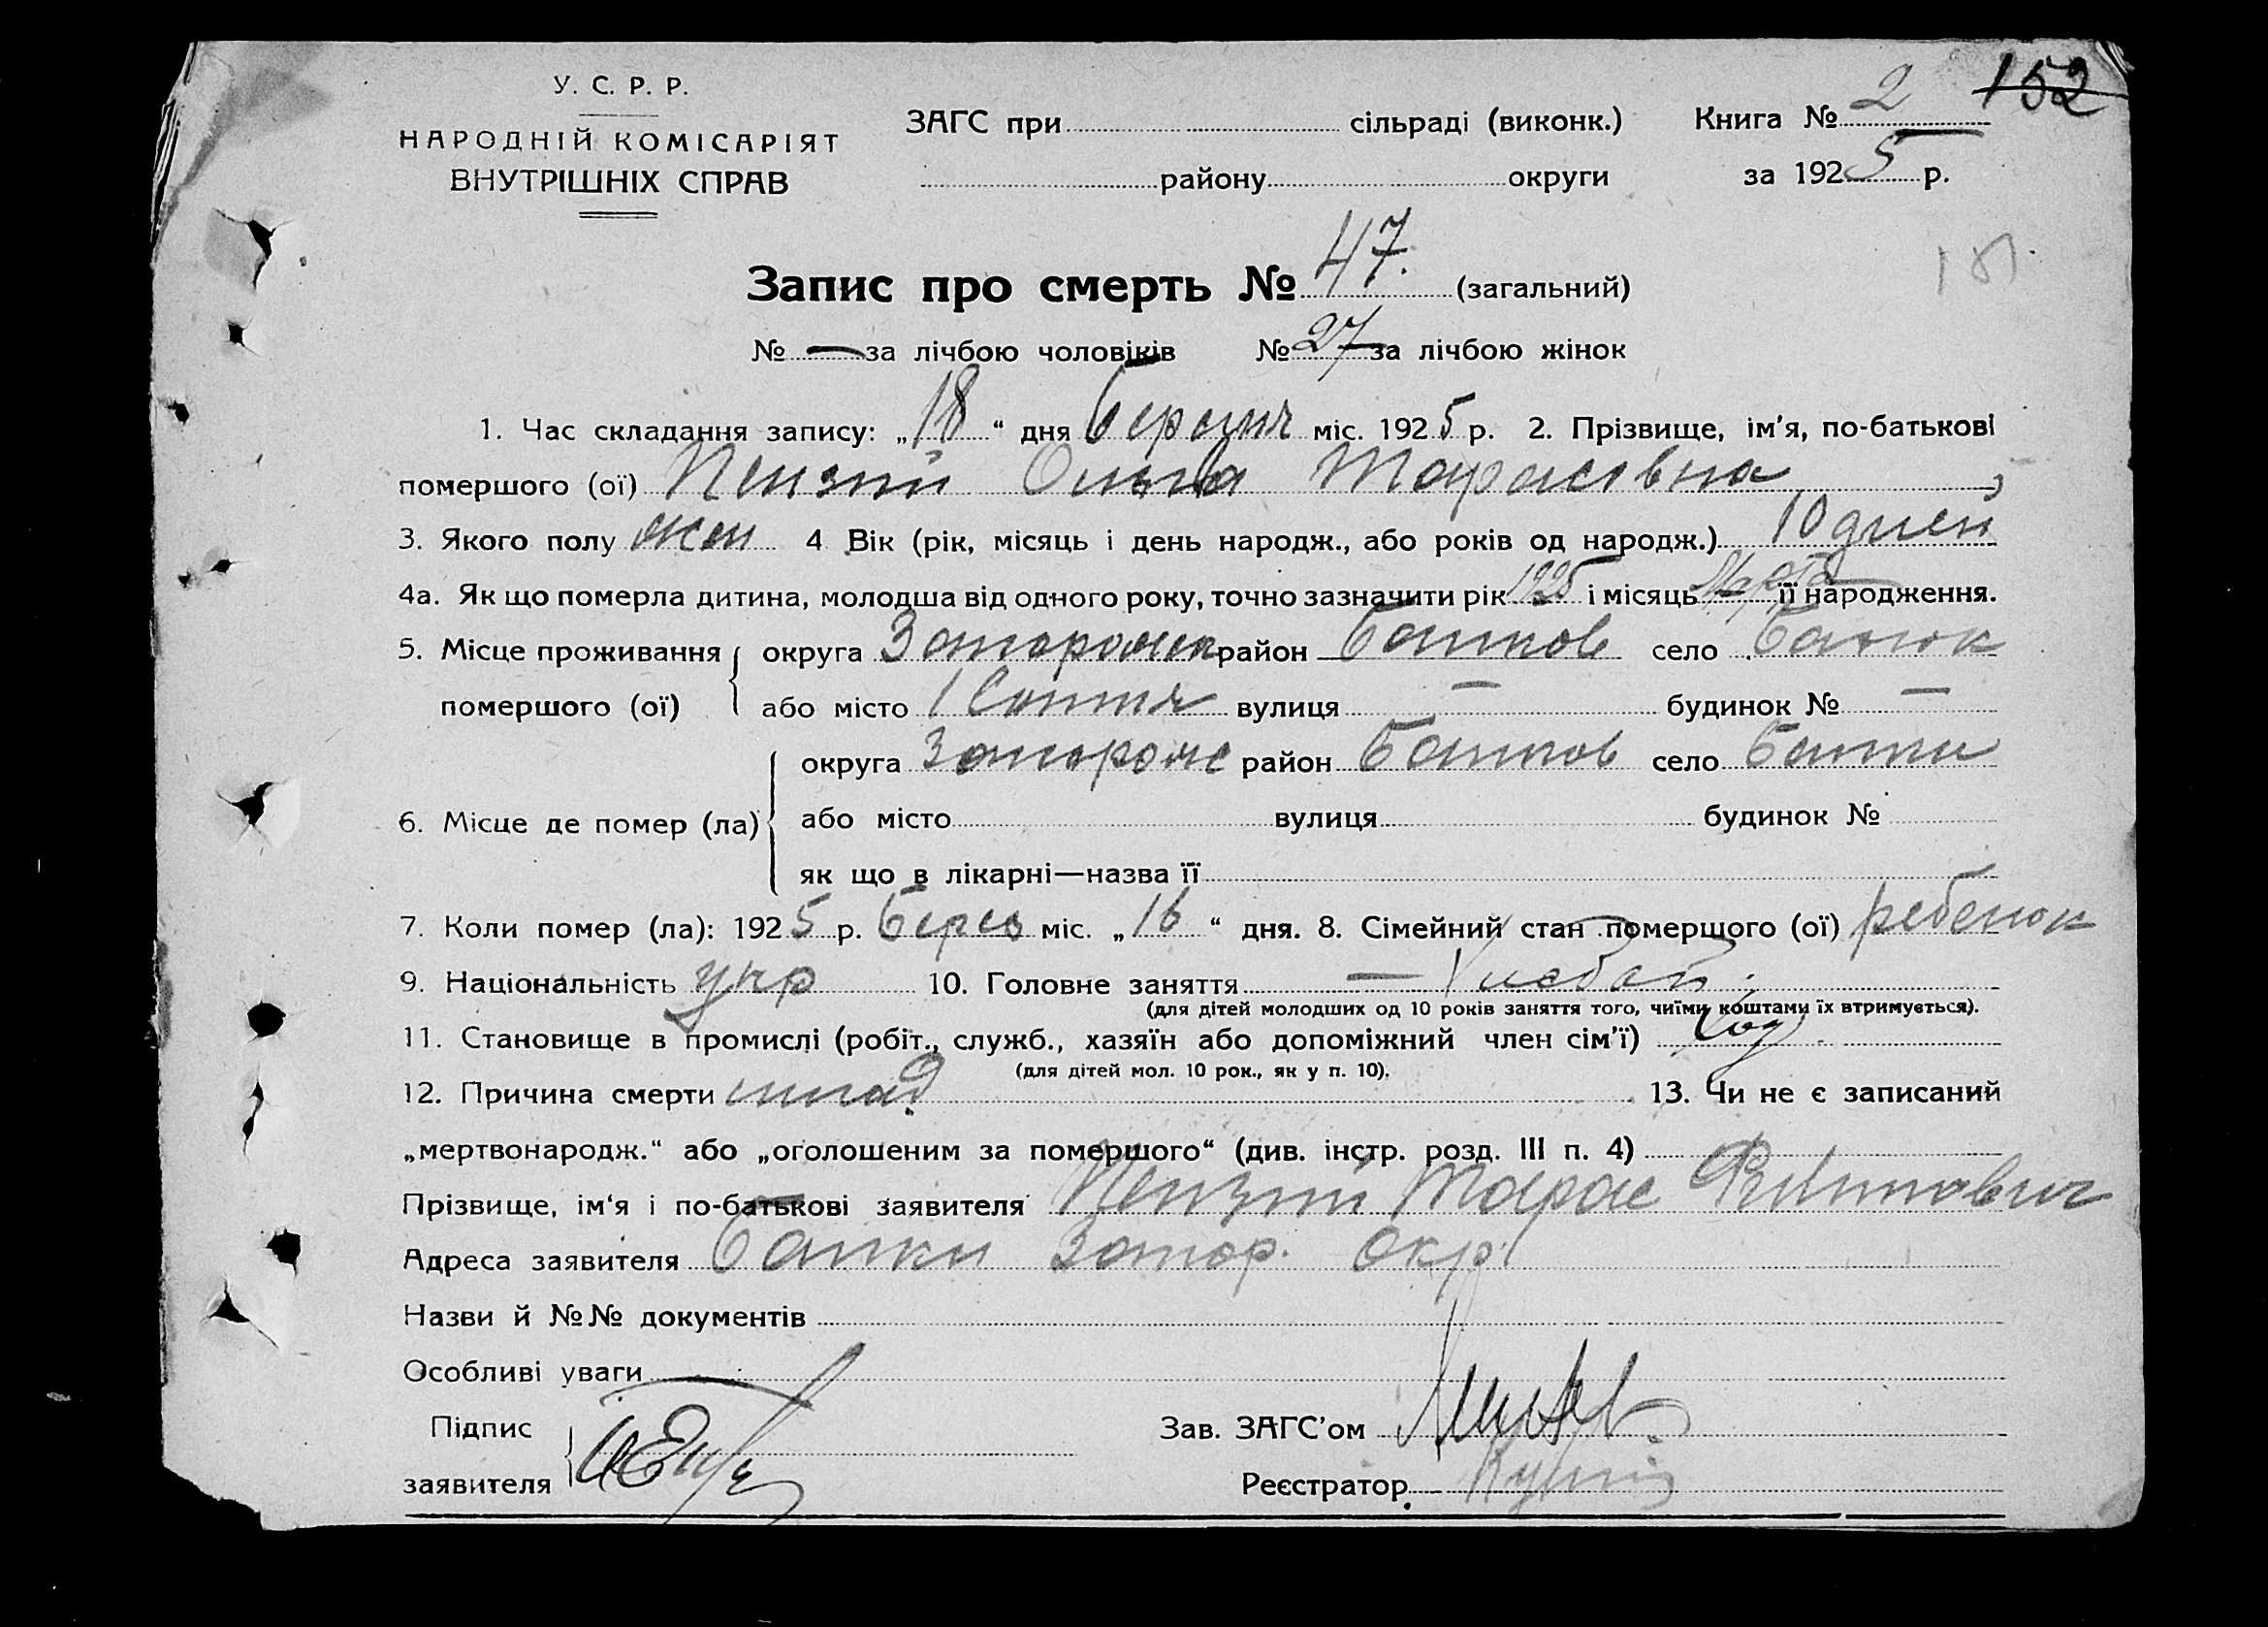 У. С. Р. Р.
НАРОДНІЙ КОМІСАРІЯТ
ВНУТРІШНІХ СПРАВ
ЗАГС при сільраді (виконк.)
району округи
Книга № 2 152
за 1925 р.
Запис про смерть № 47. (загальний)
№ — за лічбою чоловіків № 27 за лічбою жінок
1. Час складання запису: „18“ дня березня міс. 1925 р. 2. Прізвище, ім'я, по-батькові
помершого (ої) Ольга Тарасівна
3. Якого полу жен 4 Вік (рік, місяць і день народж., або років од народж.) 10 днен
4а. Як що померла дитина, молодша від одного року, точно зазначити рік 1925 і місяць Марта її народження.
5. Місце проживання округа район село
помершого (ої) або місто вулиця — будинок № —
6. Місце де помер (ла) округа Запорож район село
або місто вулиця будинок №
як що в лікарні—назва її
7. Коли помер (ла): 1925 р. берез міс. „16“ дня. 8. Сімейний стан помершого (ої) ребенок
9. Національність укр 10. Головне заняття — Хлебоп.
(для дітей молодших од 10 років заняття того, чиїми коштами їх втримується).
11. Становище в промислі (робіт., служб., хазяїн або допоміжний член сім'ї)
(для дітей мол. 10 рок., як у п. 10).
12. Причина смерти 13. Чи не є записаний
„мертвонародж.“ або „оголошеним за помершого“ (див. інстр. розд. III п. 4)
Прізвище, ім‘я і по-батькові заявителя Тарас Филипович
Адреса заявителя Балки Запор. окр.
Назви й №№ документів
Особливі уваги
Підпис
заявителя
Зав. ЗАГС'ом
Реєстратор